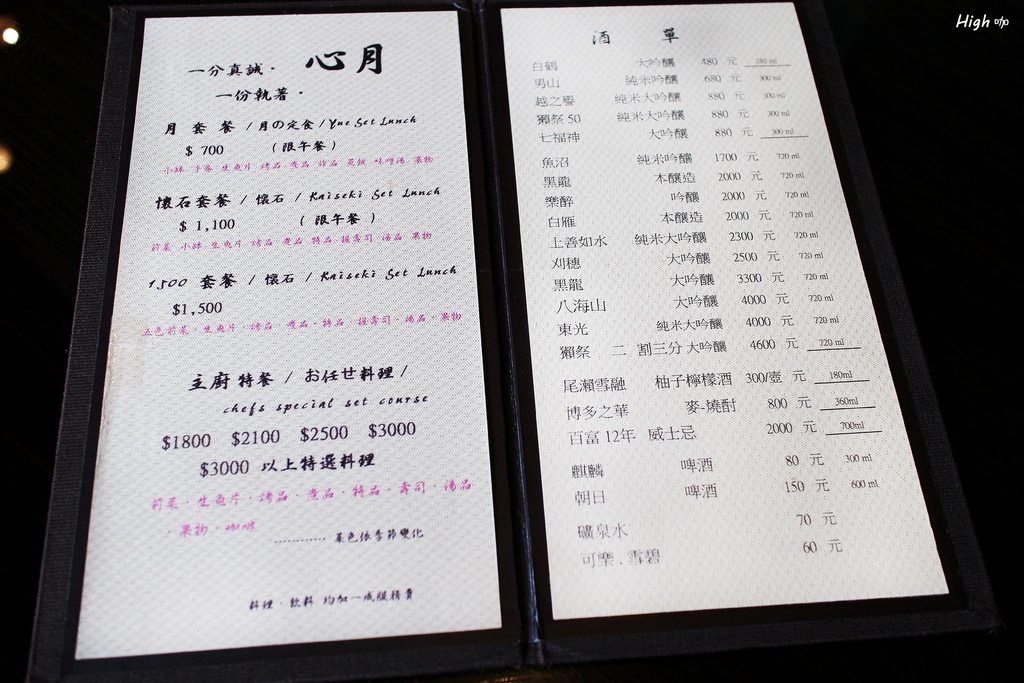 High 咖
心月
一分真誠·
一份執著·
月 套 餐 / 月の定食 / Yue Set Lunch
$ 700 ( 限午餐 )
小缽 手卷 生魚片 烤品 煮品 炸品 蒸飯 味噌湯 果物
懷石套餐 / 懷石 / Kaiseki Set Lunch
$ 1,100 ( 限午餐 )
前菜 小缽 生魚片 烤品 煮品 特品 握壽司 湯品 果物
1,500 套餐 / 懷石 / Kaiseki Set Lunch
$1,500
五色前菜·生魚片·烤品·煮品·特品·握壽司·湯品·果物
主廚特餐 / お任せ料理 /
chefs special set course
$1800 $2100 $2500 $3000
$3000 以上特選料理
前菜·生魚片·烤品·煮品·特品·壽司·湯品
·果物·咖啡
............ 菜色依季節變化
料理·飲料 均加一成服務費
酒 單
白鶴 大吟釀 480 元 180 ml
男山 純米大吟釀 680 元 300 ml
越之譽 純米大吟釀 880 元 300 ml
獺祭 50 純米大吟釀 880 元 300 ml
七福神 大吟釀 880 元 300 ml
魚沼 純米吟釀 1700 元 720 ml
黑龍 本釀造 2000 元 720 ml
樂醉 吟釀 2000 元 720 ml
白雁 本釀造 2000 元 720 ml
上善如水 純米大吟釀 2300 元 720 ml
刈穗 大吟釀 2500 元 720 ml
黑龍 大吟釀 3300 元 720 ml
八海山 大吟釀 4000 元 720 ml
東光 純米大吟釀 4000 元 720 ml
獺祭 二 割三分 大吟釀 4600 元 720 ml
尾瀨雪融 柚子檸檬酒 300/壺 180ml
博多之華 麥-燒酎 800 元 360ml
百富 12年 威士忌 2000 元 700ml
麒麟 啤酒 80 元 300 ml
朝日 啤酒 150 元 600 ml
礦泉水 70 元
可樂 . 雪碧 60 元